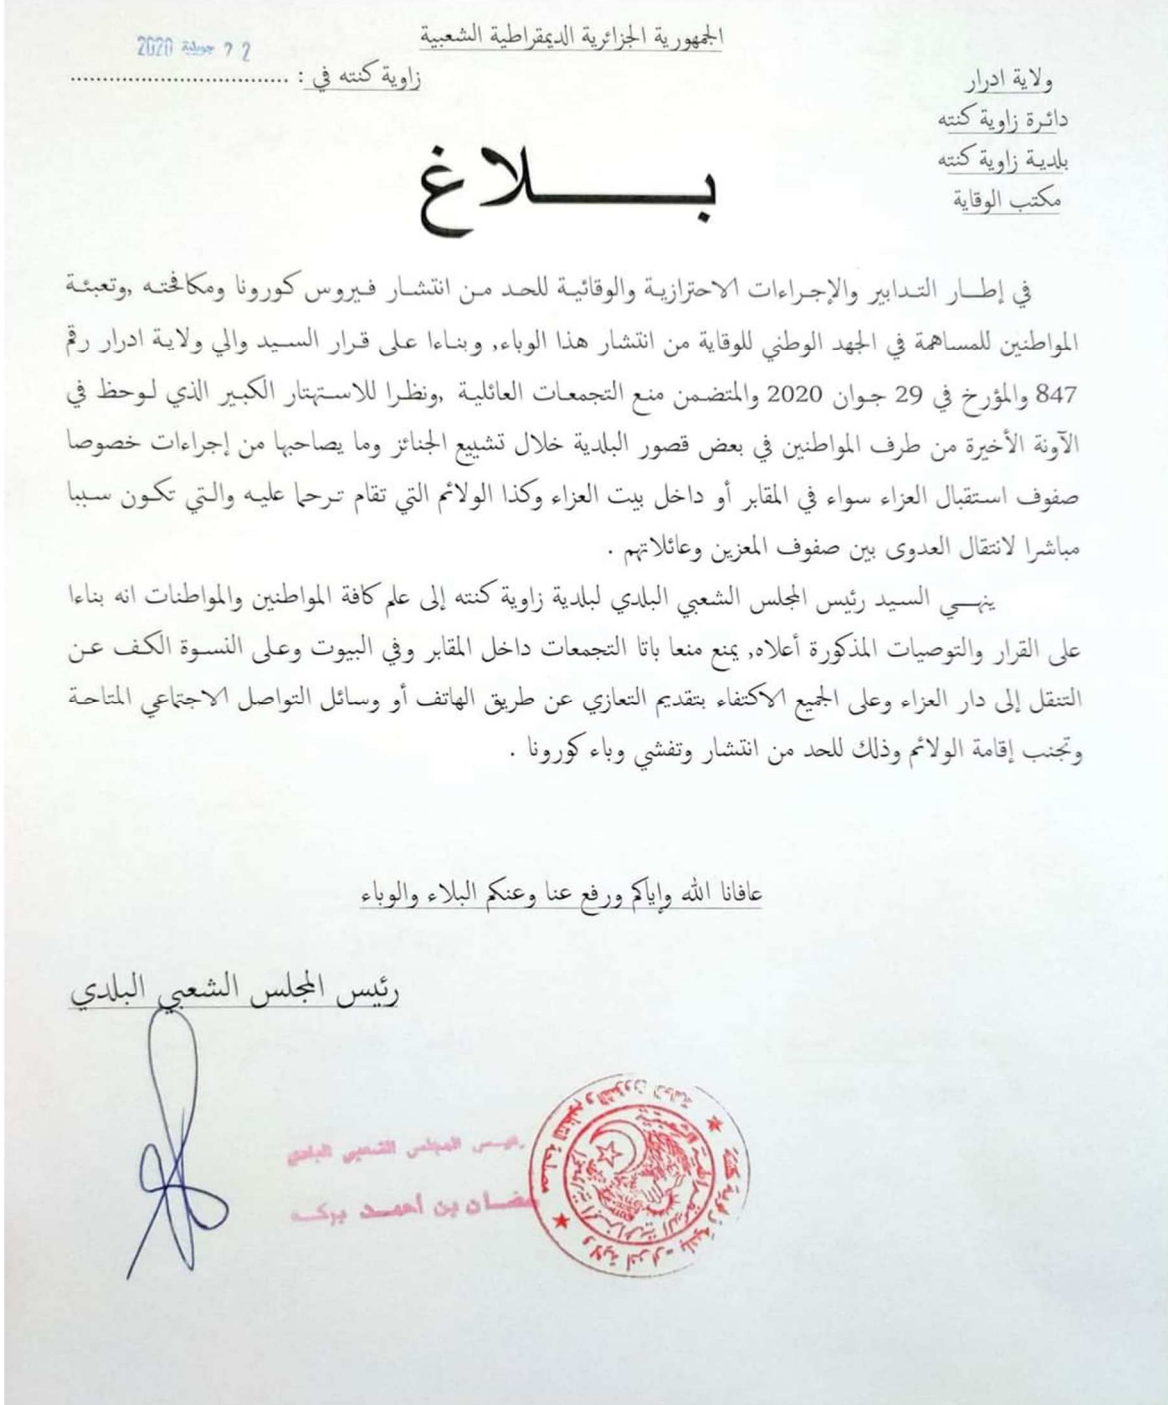 الجمهورية الجزائرية الديمقراطية الشعبية
ولاية ادرار
دائرة زاوية كنته
بلدية زاوية كنته
مكتب الوقاية
22 جويلية 2020
زاوية كنته في : ..................................
بـــــــلاغ
في إطـــار التـدابير والإجـراءات الاحترازيـة والوقائيـة للحـد مـن انتشـار فـيروس كـورونا ومكافحتـه ,وتعبئـة
المواطنين للمساهمة في الجهد الوطني للوقاية من انتشار هذا الوباء, وبنـاءا عـلى قـرار السـيد والي ولايـة ادرار رقم
847 والمؤرخ في 29 جـوان 2020 والمتضمـن منـع التجمعـات العائليـة ,ونظـرا للاسـتهتار الكبـير الذي لـوحظ في
الآونة الأخيرة من طرف المواطنين في بعض قصور البلدية خلال تشييع الجنائز وما يصاحبها من إجراءات خصوصا
صفوف اسـتقبال العزاء سواء في المقابر أو داخل بيت العزاء وكذا الولائم التي تقام تـرحما عليـه والـتي تكـون سـببا
مباشرا لانتقال العدوى بين صفوف المعزين وعائلاتهم .
ينهـــي السـيد رئيس المجلس الشعبي البلدي لبلدية زاوية كنته إلى علم كافة المواطنين والمواطنات انه بناءا
على القرار والتوصيات المذكورة أعلاه, يمنع منعا باتا التجمعات داخل المقابر وفي البيوت وعـلى النسـوة الكـف عـن
التنقل إلى دار العزاء وعلى الجميع الاكتفاء بتقديم التعازي عن طريق الهاتف أو وسائل التواصل الاجتماعي المتاحـة
وتجنب إقامة الولائم وذلك للحد من انتشار وتفشي وباء كورونا .
عافانا الله وإياكم ورفع عنا وعنكم البلاء والوباء
رئيس المجلس الشعبي البلدي
رئيس المجلس الشعبي البلدي
بن أحمد بركه
ولاية ادرار - بلدية زاوية كنتة
الجمهورية الجزائرية الديمقراطية الشعبية